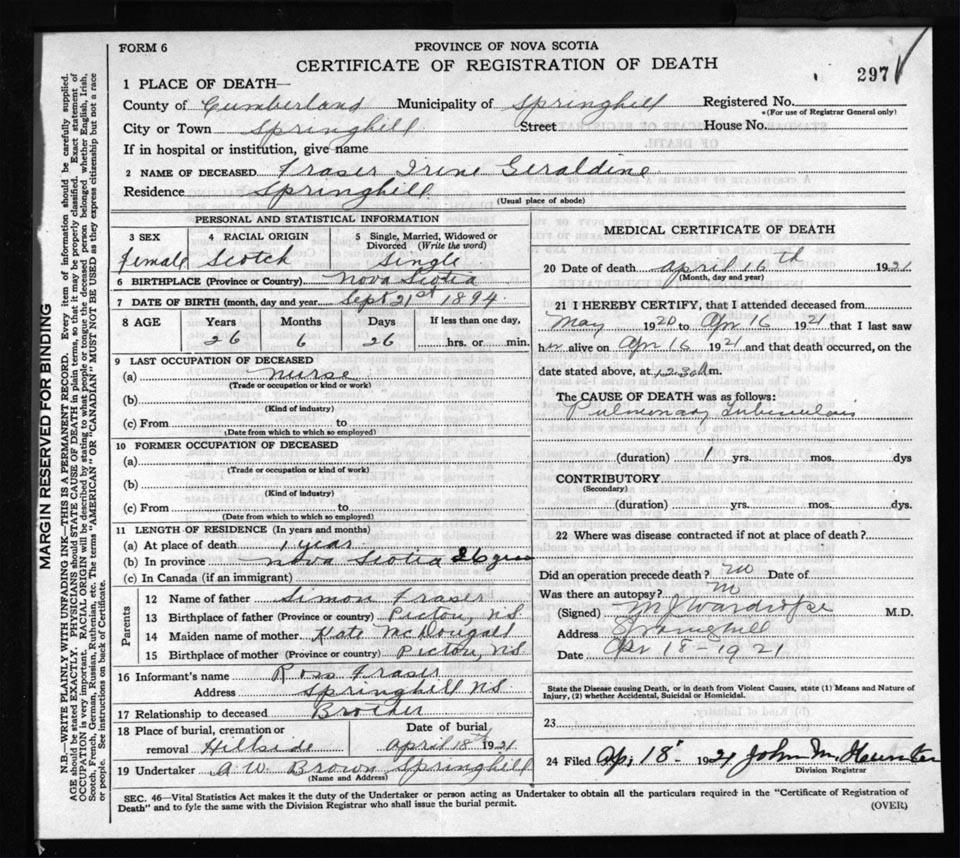 FORM 6
PROVINCE OF NOVA SCOTIA
CERTIFICATE OF REGISTRATION OF DEATH
297
1 PLACE OF DEATH—
County of Cumberland Municipality of Springhill Registered No.
*(For use of Registrar General only)
City or Town Springhill Street House No.
If in hospital or institution, give name
2 NAME OF DECEASED Fraser Irene Geraldine
Residence Springhill
(Usual place of abode)
PERSONAL AND STATISTICAL INFORMATION
3 SEX
female
4 RACIAL ORIGIN
Scotch
5 Single, Married, Widowed or Divorced (Write the word)
Single
6 BIRTHPLACE (Province or Country) Nova Scotia
7 DATE OF BIRTH (month, day and year) Sept 21st 1894
8 AGE Years Months Days If less than one day,
26 6 26 hrs. or min.
9 LAST OCCUPATION OF DECEASED
(a) nurse
(Trade or occupation or kind or work)
(b)
(Kind of industry)
(c) From to
(Date from which to which so employed)
10 FORMER OCCUPATION OF DECEASED
(a)
(Trade or occupation or kind or work)
(b)
(Kind of industry)
(c) From to
(Date from which to which so employed)
11 LENGTH OF RESIDENCE (In years and months)
(a) At place of death 1 year
(b) In province Nova Scotia 26 yrs
(c) In Canada (if an immigrant)
Parents
12 Name of father Simon Fraser
13 Birthplace of father (Province or country) Pictou, NS
14 Maiden name of mother Kate McDougall
15 Birthplace of mother (Province or country) Pictou, NS
16 Informant's name Ross Fraser
Address Springhill NS
17 Relationship to deceased Brother
18 Place of burial, cremation or removal Hillside
Date of burial
April 18th 1921
19 Undertaker A W Brown Springhill
(Name and Address)
MEDICAL CERTIFICATE OF DEATH
20 Date of death april 16th 1921
(Month, day and year)
21 I HEREBY CERTIFY, that I attended deceased from
May 1920 to Apr 16 1921 that I last saw
her alive on Apr 16 1921 and that death occurred, on the
date stated above, at 12 30 m.
The CAUSE OF DEATH was as follows:
Pulmonary Tuberculosis
(duration) 1 yrs. mos. dys
CONTRIBUTORY
(Secondary)
(duration) yrs. mos. dys
22 Where was disease contracted if not at place of death?
Did an operation precede death? no Date of
Was there an autopsy? no
(Signed) M J Wardrope M.D.
Address Springhill
Date Apr 18-1921
State the Disease causing Death, or in death from Violent Causes, state (1) Means and Nature of
Injury, (2) whether Accidental, Suicidal or Homicidal.
23
24 Filed Apr 18 1921 John M. Hunter
Division Registrar
SEC. 46—Vital Statistics Act makes it the duty of the Undertaker or person acting as Undertaker to obtain all the particulars required in the "Certificate of Registration of
Death" and to fyle the same with the Division Registrar who shall issue the burial permit.
(OVER)
MARGIN RESERVED FOR BINDING
N.B.—WRITE PLAINLY WITH UNFADING INK—THIS IS A PERMANENT RECORD. Every item of information should be carefully supplied.
AGE should be stated EXACTLY. PHYSICIANS should STATE CAUSE OF DEATH in plain terms, so that it may be properly classified. Exact statement of
OCCUPATION is very important. RACIAL ORIGIN will be described by stating to what people or tongue the deceased person belonged whether English, Irish,
Scotch, French, German, Russian, Ruthenian, etc. The terms "AMERICAN" or "CANADIAN" MUST NOT BE USED as they express citizenship but not a race
or people. See instructions on back of Certificate.